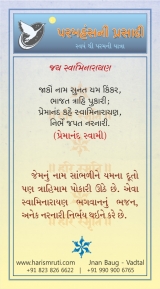 પરમહંસની પ્રસાદી
સ્વયં થી પરમની યાત્રા
જય સ્વામિનારાયણ
જાકો નામ સુનત યમ કિંકર,
ભાજત ત્રાહિ પુકારી;
પ્રેમાનંદ કહે સ્વામિનારાયણ,
નિર્ભે જપત નરનારી.
(પ્રેમાનંદ સ્વામી)
જેમનું નામ સાંભળીને યમના દૂતો
પણ ત્રાહિમામ પોકારી ઊઠે છે. એવા
સ્વામિનારાયણ ભગવાનનું ભજન,
અનેક નરનારી નિર્ભય થઈને કરે છે.
www.harismruti.com Jnan Baug - Vadtal
+91 823 826 6622 | +91 990 900 6765